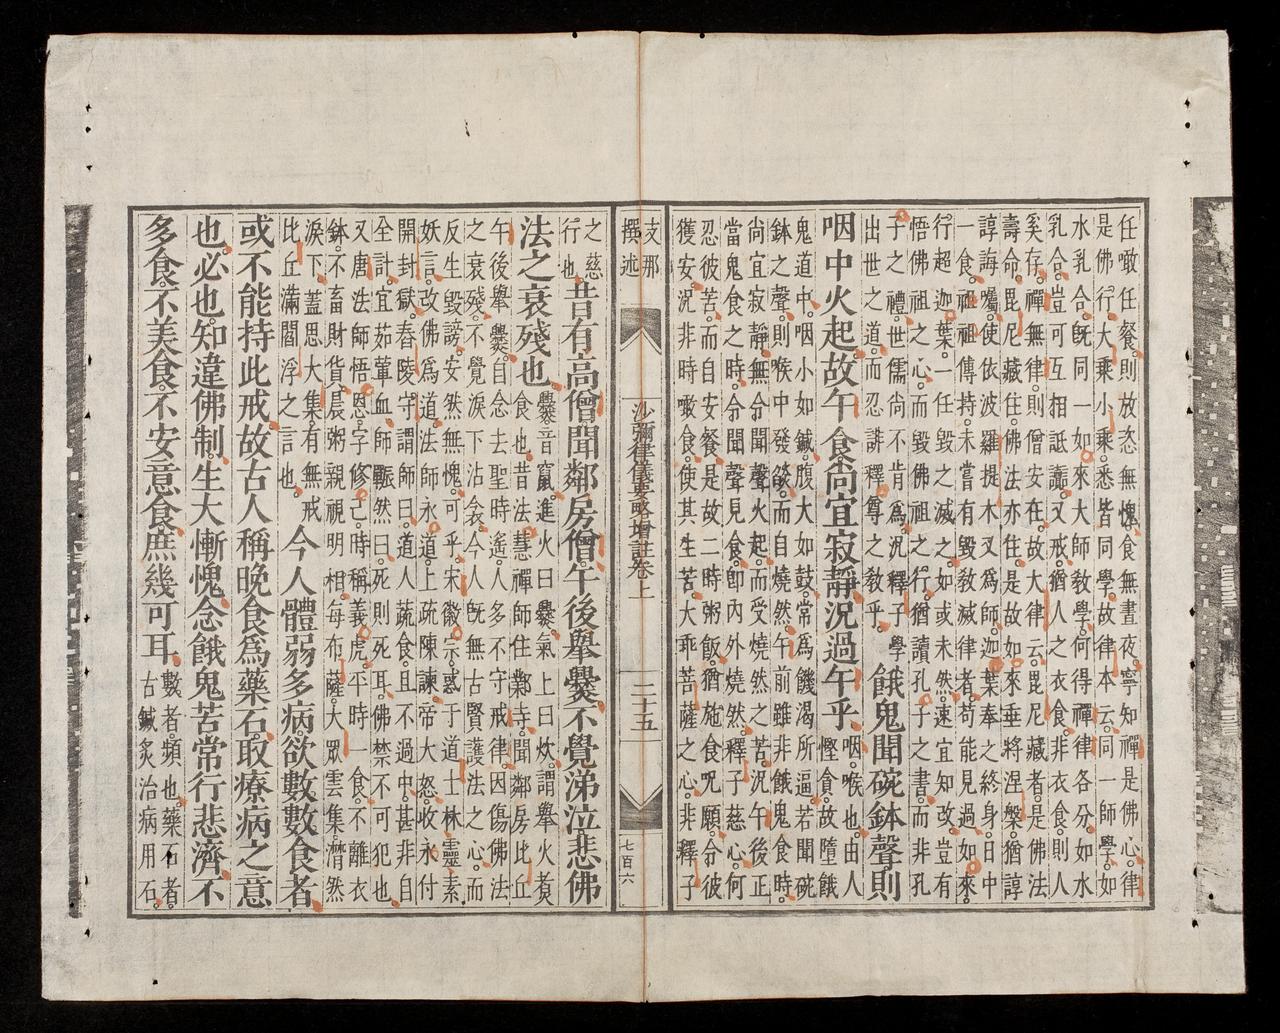 任噉任餐。則放恣無愧。食無晝夜。寧知禪是佛心。律
是佛行。大乘小乘。悉皆同學。故律本云。同一師學。如
水乳合。旣同一如來大師敎學。何得禪律各分。如水
乳合。豈可互相詆譏。又戒猶人之衣食。非衣食。則人
奚存。禪無律。則僧安在。故大律云。毘尼藏者。是佛法
壽命。毘尼藏住。佛法亦住。是故如來垂將涅槃。猶諄
諄誨囑。使依波羅提木叉爲師。迦葉奉之終身。日中
一食。祖祖傳持。未嘗有毀敎滅律者。苟能見過。如來
行超迦葉。一任毀之滅之。如或未然。速宜知改。豈有
悟佛祖之心。而毀佛祖之行。猶讀孔子之書。而非孔
子之禮。世儒尚不肯爲。況釋子
學出世之道。而忍誹釋尊之敎乎。
餓鬼聞碗鉢聲。則
咽中火起。故午食尚宜寂靜。況過午乎。
咽。喉也。由人慳貪。故墮餓
鬼道中。咽小如鍼。腹大如鼓。常爲饑渴所逼。若聞碗
鉢之聲。則喉中發燄。而自燒然。午前雖非餓鬼食時。
尚宜寂靜。無分聞聲火起。而受燒然之苦。況午後正
當鬼食之時。分聞聲見食。卽內外燒然。釋子慈心。何
忍彼苦。而自安餐。是故二時粥飯。猶施食呪願。令彼
獲安。況非時噉食。使其生苦。大乖菩薩之心。非釋子
支那
撰述
沙彌律儀要略增註卷上
二十五
七百六
之慈
行也。
昔有高僧。聞鄰房僧。午後舉爨。不覺涕泣。悲佛
法之衰殘也。
爨。音竄。進火曰爨。氣上曰炊。謂舉火煑
食也。昔法慧禪師住鄴寺。聞鄰房比丘
午後舉爨。自念去聖時遙。人多不守戒律。因傷佛法
之衰殘。不覺淚下沾衾。今人旣無古賢護法之心。而
反生毀謗。安然無愧。可乎。宋徽宗。惑于道士林靈素
妖言。改佛爲道。法師永道。上疏陳諫。帝大怒。收永付
開封獄。舂陵守。謂師曰。道人蔬食。且不過中。甚非自
全計。宜茹葷血。師輾然曰。死則死耳。佛禁不可犯也。
又唐法師悟恩。字修己。時稱義虎。平時一食。不離衣
鉢。不畜財貨。晨粥親視明相。每布薩。大眾雲集。潸然
淚下。蓋思大集有無戒
比丘滿閻浮之言也。
今人體弱多病。欲數數食者
或不能持此戒。故古人稱晚食爲藥石。取療病之意
也。必也知違佛制。生大慚愧。念餓鬼苦。常行悲濟。不
多食。不美食。不安意食。庶幾可耳。
數者。頻也。藥石者。
古鍼炙治病用石。